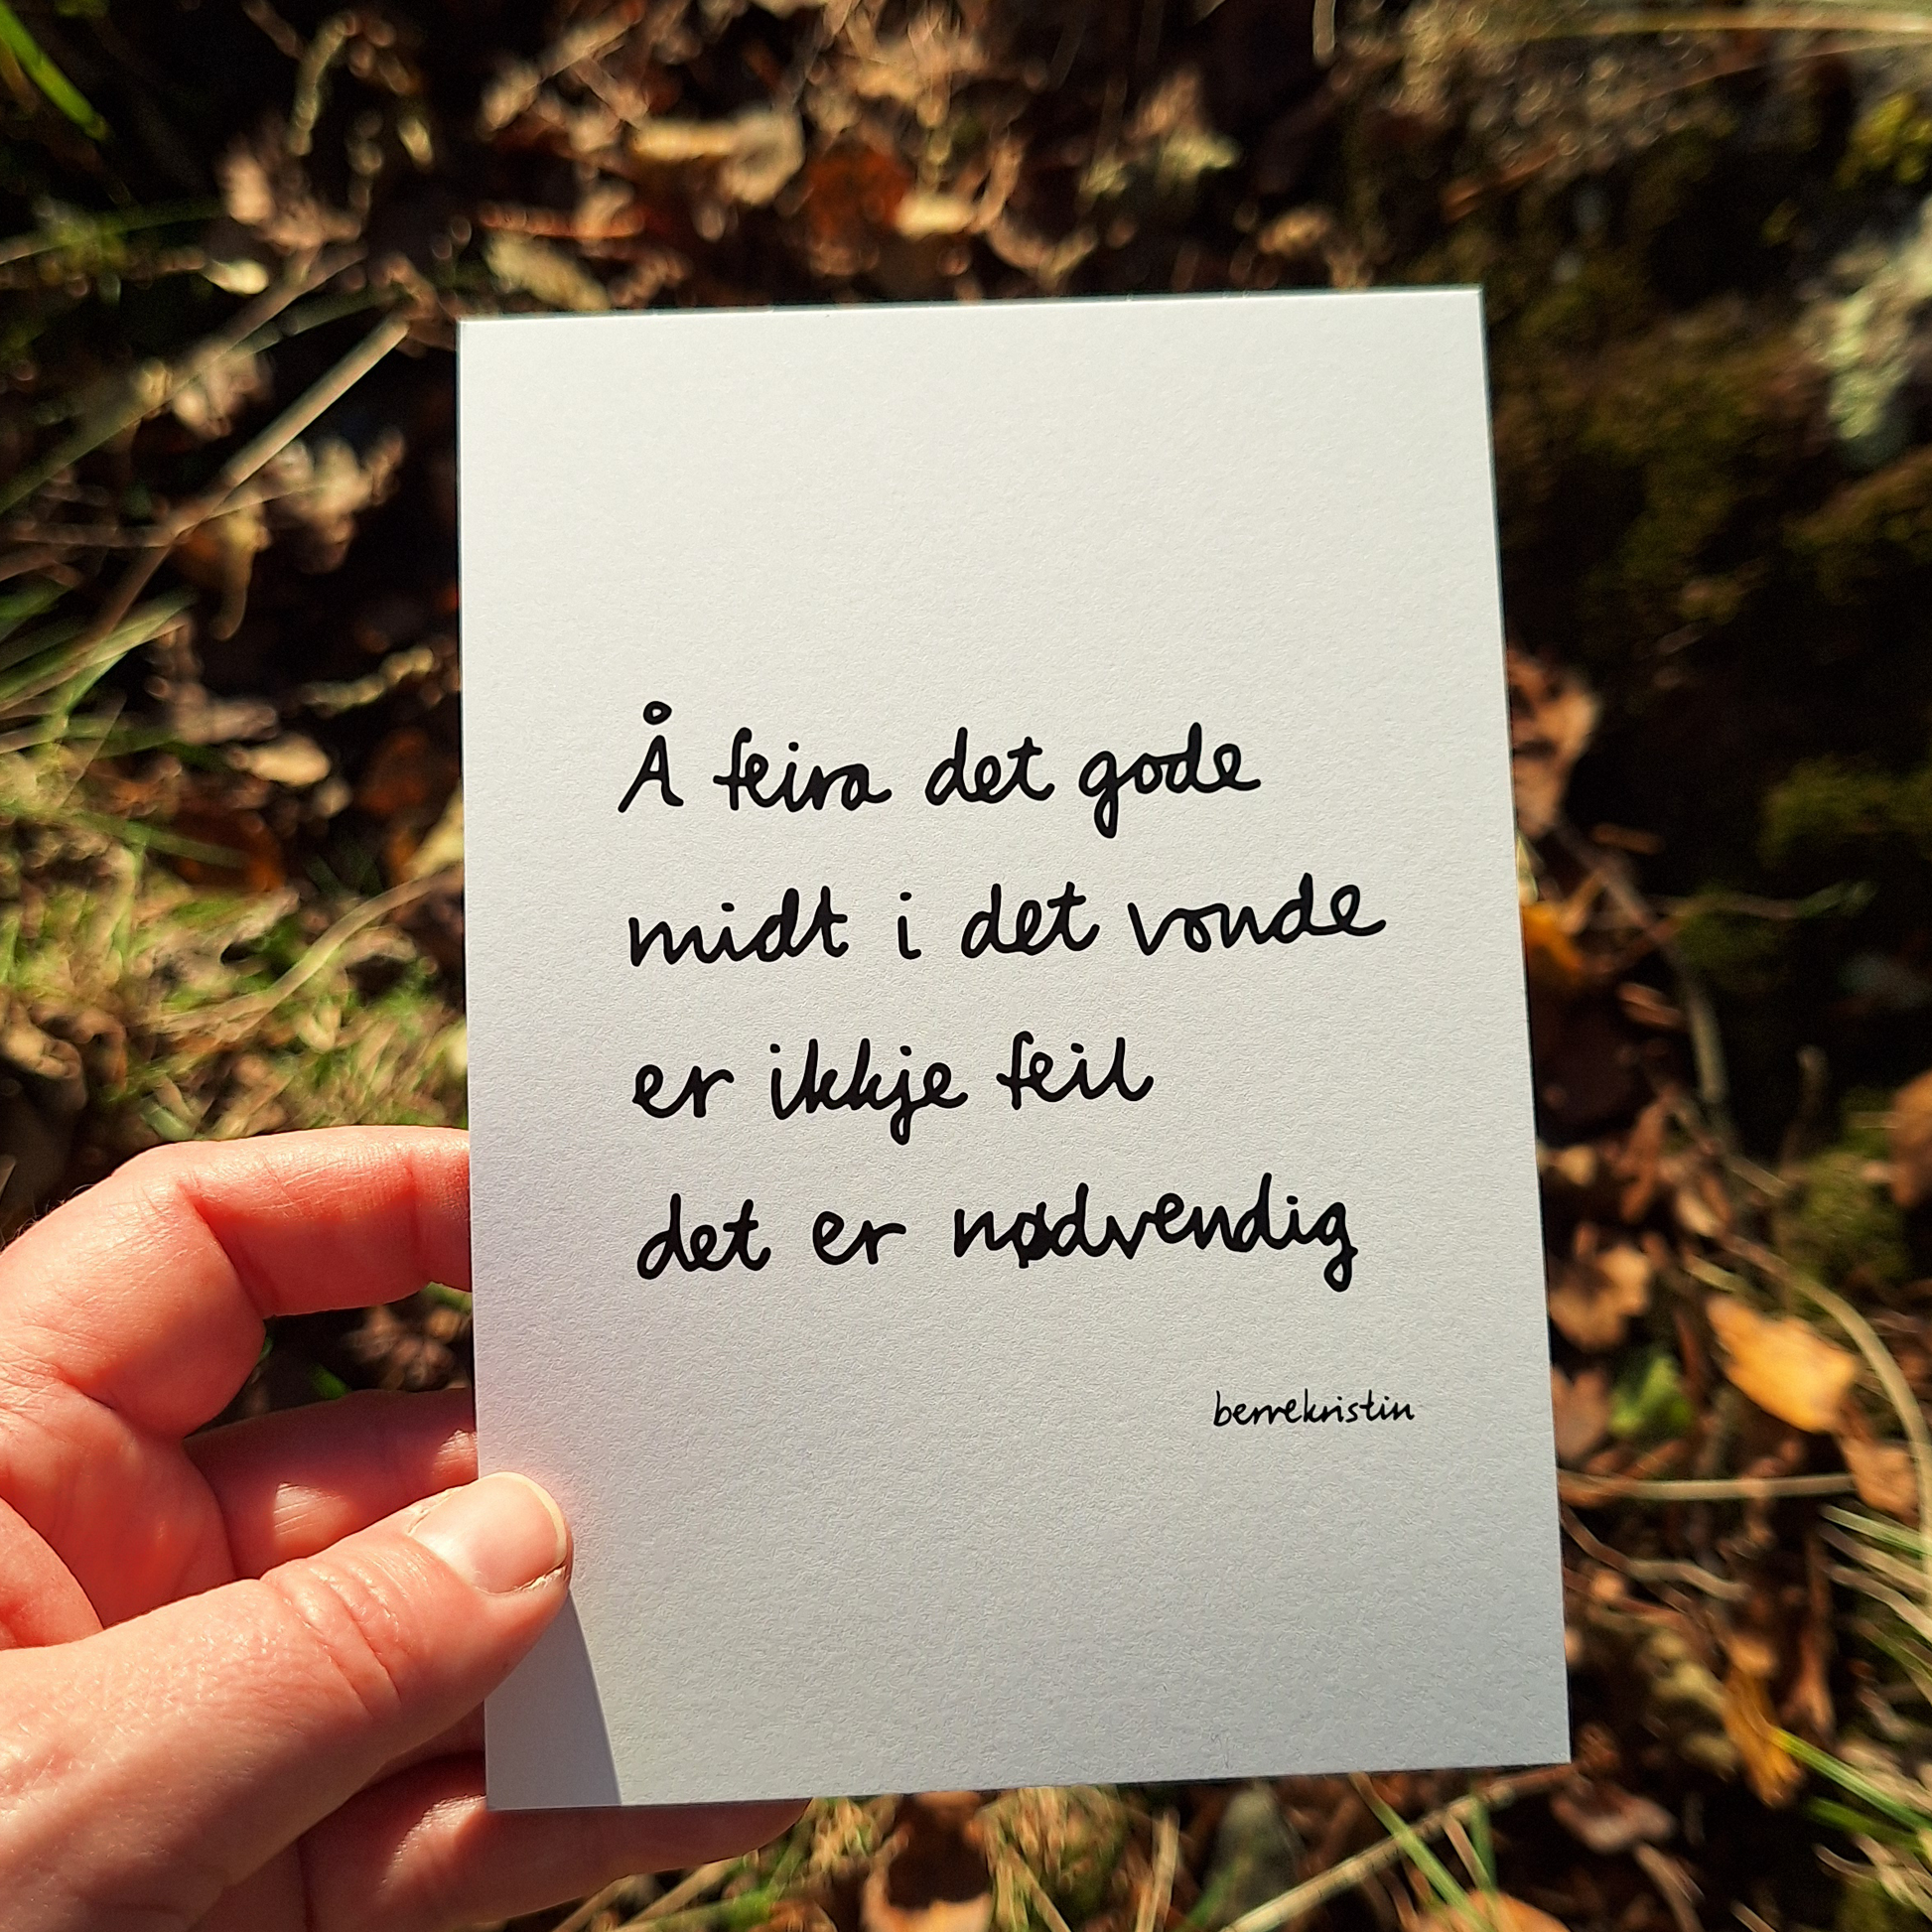 Å feira det gode
midt i det vonde
er ikkje feil
det er nødvendig
berrekristin